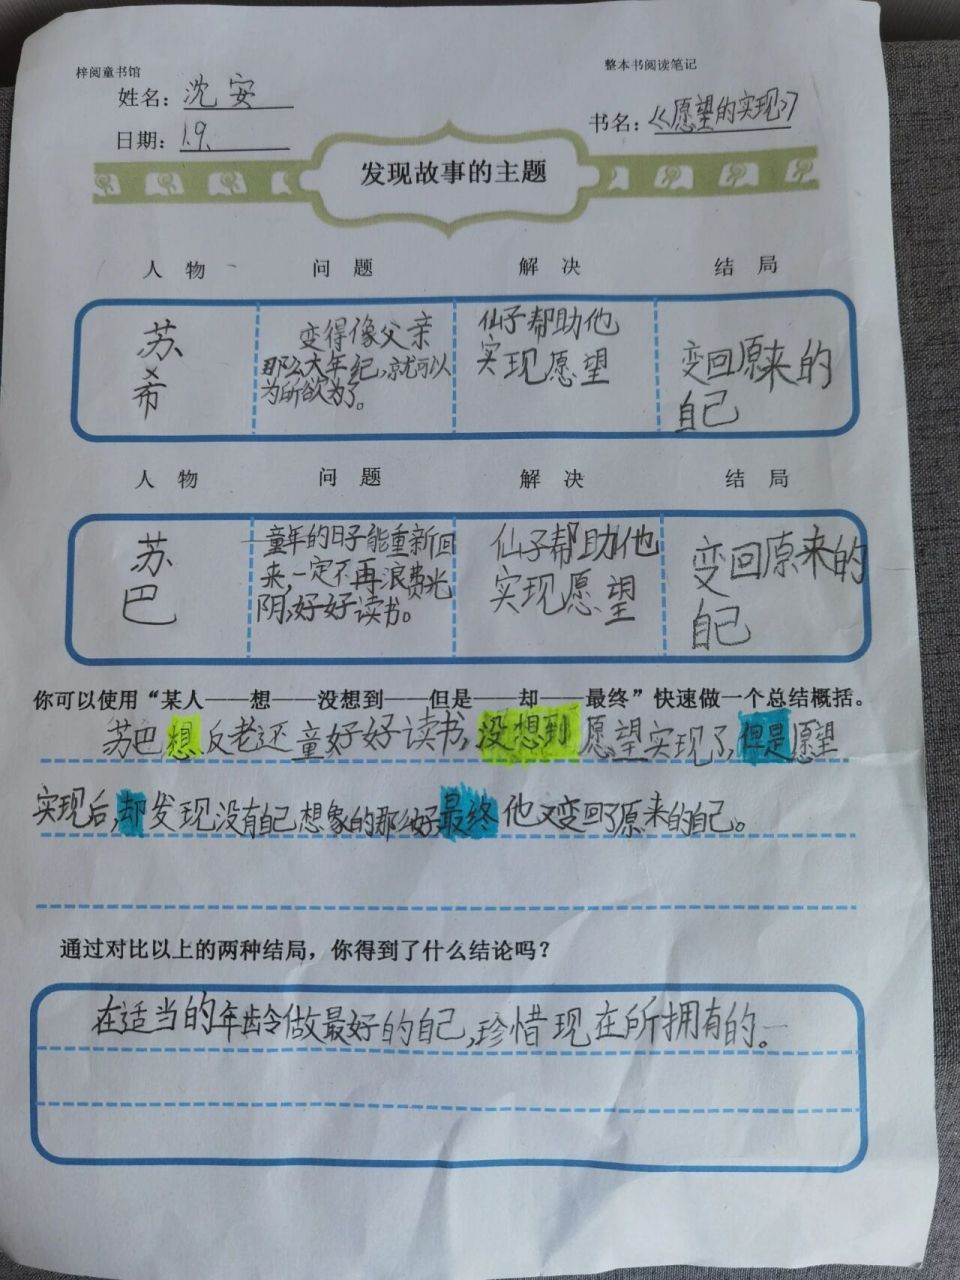 梓阅童书馆
整本书阅读笔记
姓名：沈安
书名：《愿望的实现》
日期：1.9.
发现故事的主题
人物 问题 解决 结局
苏希
变得像父亲那么大年纪，就可以为所欲为了。
仙子帮助他实现愿望
变回原来的自己
人物 问题 解决 结局
苏巴
童年的日子能重新回来，一定不再浪费光阴，好好读书。
仙子帮助他实现愿望
变回原来的自己
你可以使用“某人——想——没想到——但是——却——最终”快速做一个总结概括。
苏巴想反老还童好好读书，没想到愿望实现了，但是愿望
实现后，却发现没有自己想象的那么好最终他又变回了原来的自己。
通过对比以上的两种结局，你得到了什么结论吗？
在适当的年龄做最好的自己，珍惜现在所拥有的。